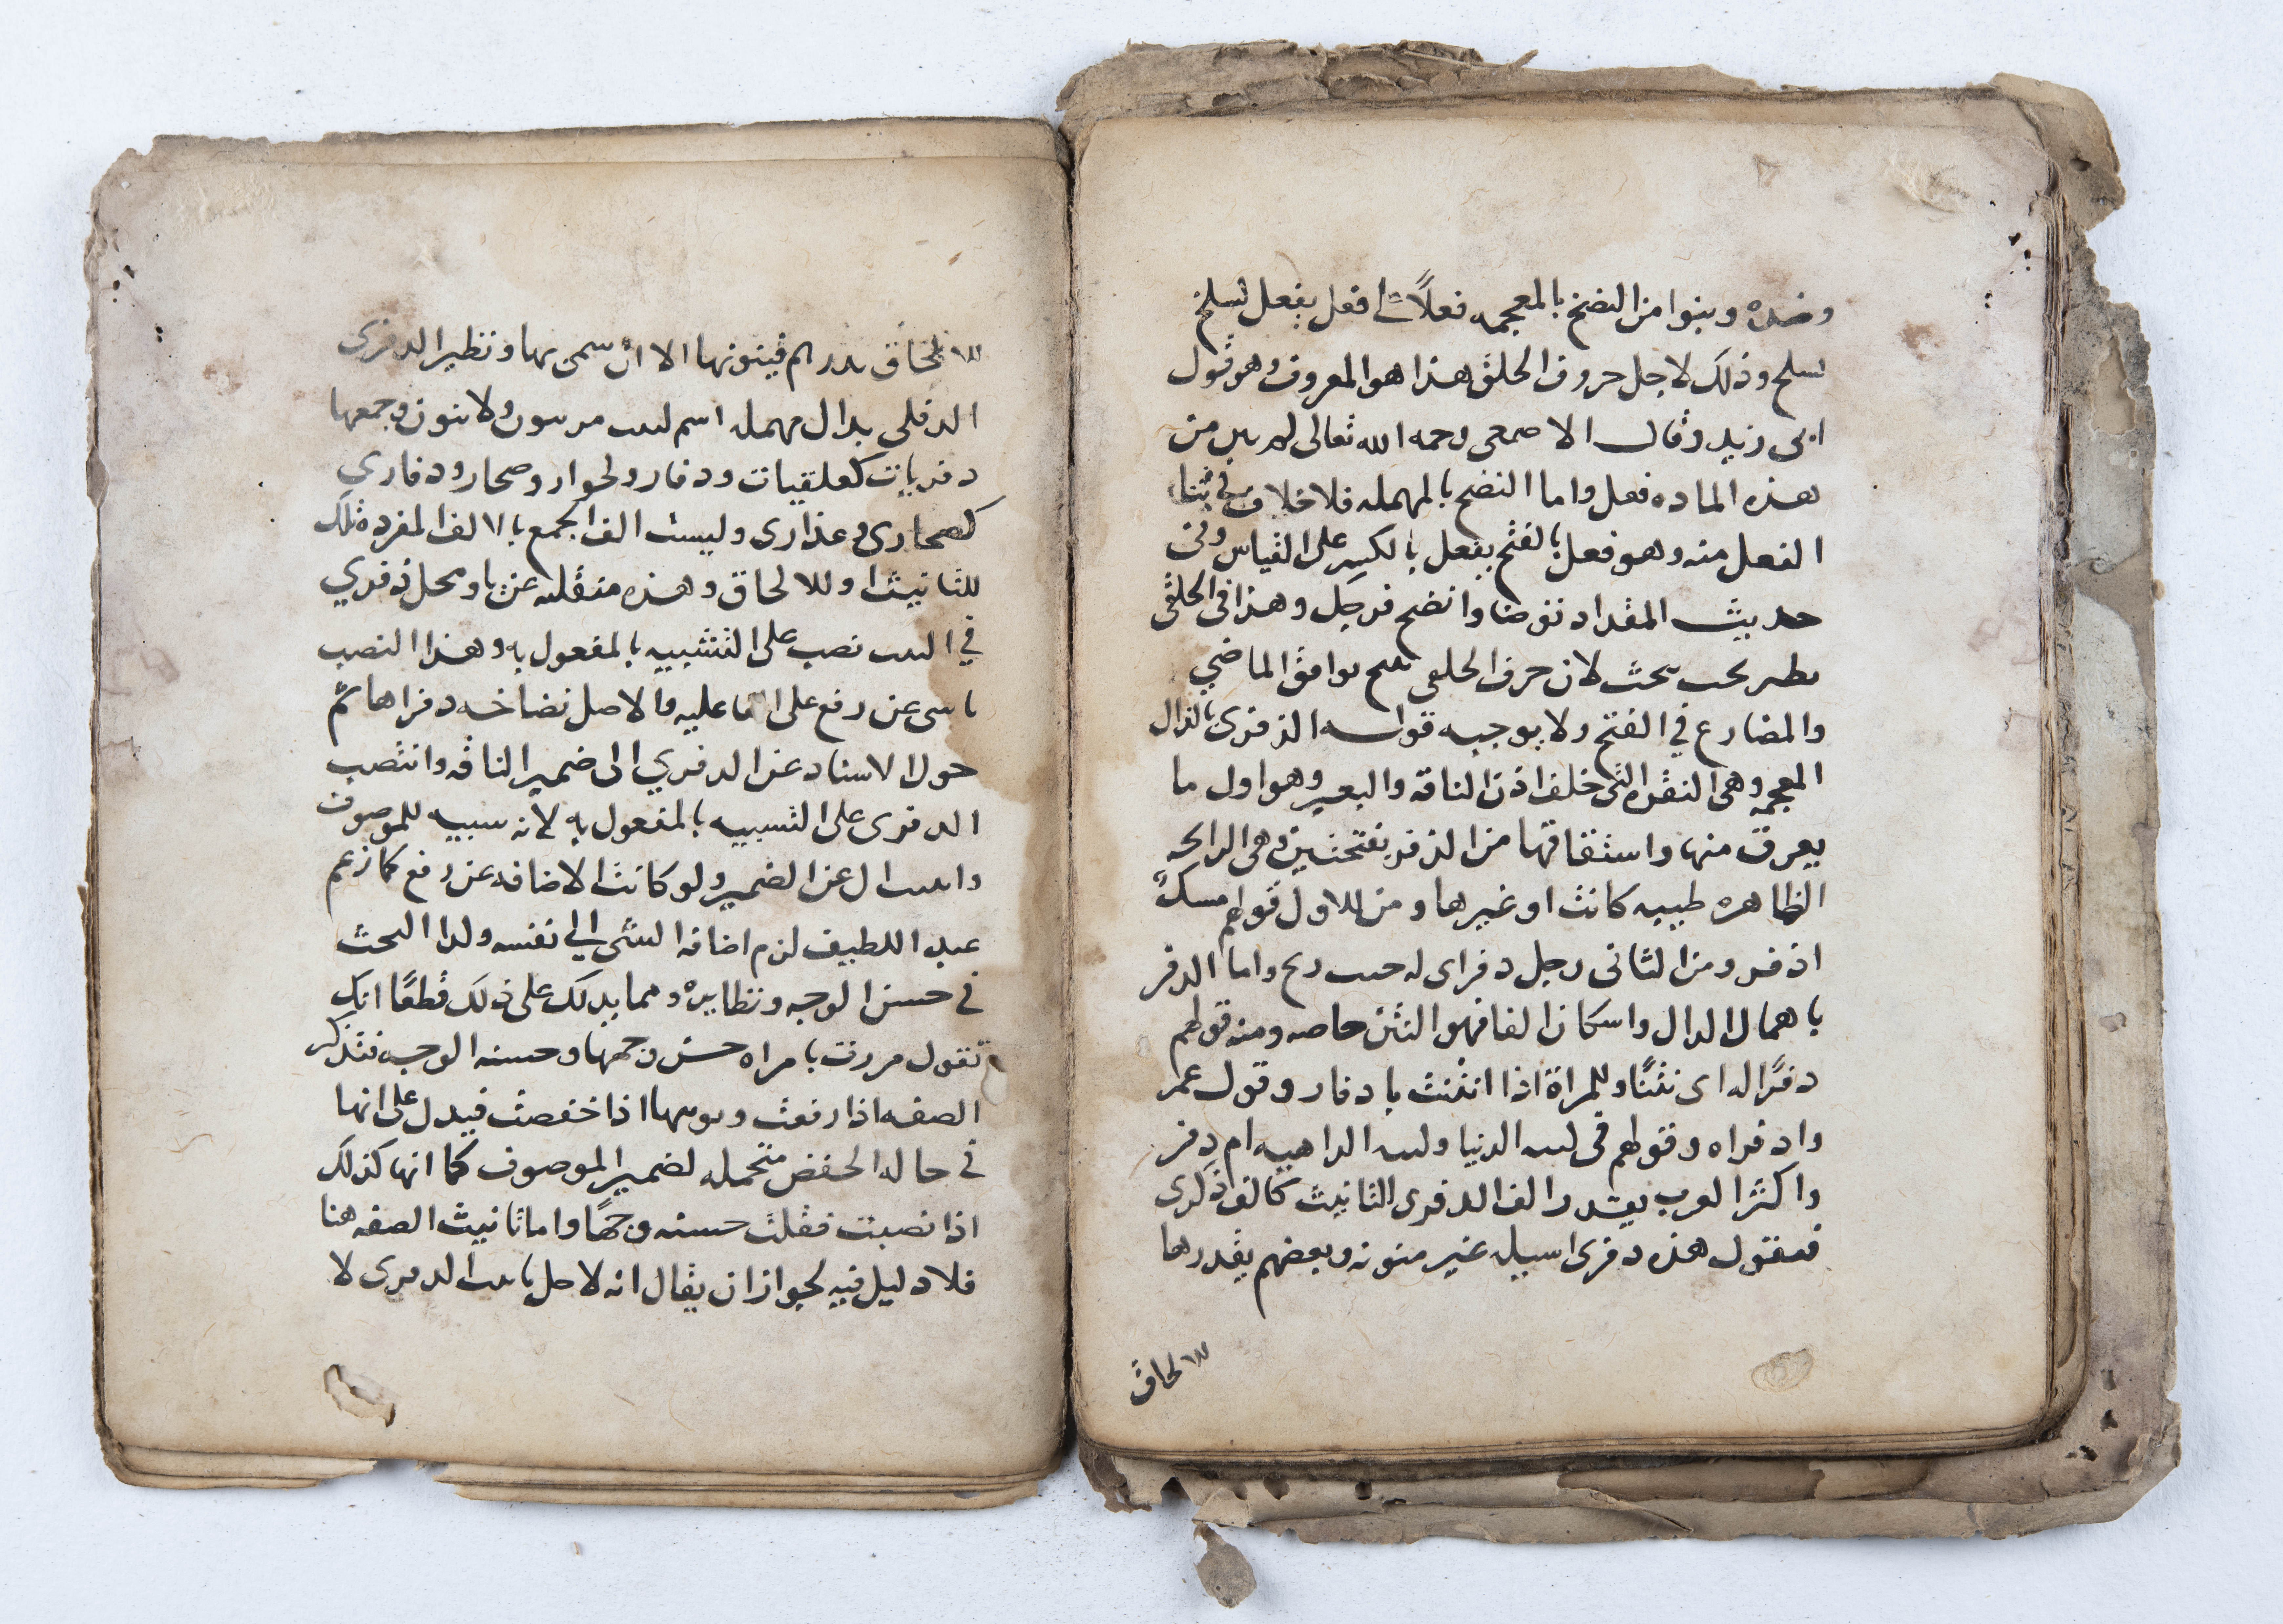 وضده وبنوا من النضخ بالمعجمه فعلاً على فعل يفعل لسلخ
يسلخ وذلك لاجل حروف الحلق هذا هو المعروف وهو قول
ابى زيد وقال الاصمعى رحمه الله تعالى لم يبن من
هذه الماده فعل واما النضح بالمهمله فلا خلاف في بنا
الفعل منه وهو فعل بالفتح يفعل بالكسر على القياس وفى
حديث المقداد توضا وانضح فرجك وهذا فى الحلقى
نظير نحت ينحت لان حرف الحلقى يوافق الماضي
والمضارع في الفتح ولا يوجبه قوله الذفرى بالذال
المعجمه وهى النقره التى خلف اذن الناقه والبعير وهو اول ما
يعرق منها واشتقاقها من الذفر بفتحتين وهى الرايحه
الظاهره طيبه كانت او غيرها ومن الاول قولهم مسك
اذفر ومن الثانى رجل دفر اى له خبث ريح واما الدفر
باهمال الدال واسكان الفا فهو النتن خاصه ومنه قولهم
دفرًا له اى نتنًا وللمراة اذا انتنت يا دفار وقول عمر
وادفراه وقولهم فى الدنيا الداهيه ام دفر
واكثر العرب يقدر الف الدفرى للتانيث كالف ذكرى
فيقول هذه دفرى اسيله غير منونه وبعضهم يقدرها
للالحاق
للالحاق بدرهم فينونها الا ان سمى بها ونظير الدفرى
الدفلى بدال مهمله اسم لنبت مر ينون ولا ينون وجمعها
دفريات كعلقيات ودفار ولجوار وصحار ودفاري
كصحارى وعذارى وليست الف الجمع بالالف المفرده تلك
للتانيث او للالحاق وهذه منقلبه عن يا ومحل ذفري
في البيت نصب على التشبيه بالمفعول به وهذا النصب
ناشى عن رفع على الفاعليه والاصل نضاخه دفراها ثم
حول الاسناد عن الدفري الى ضمير الناقه وانتصب
الدفرى على التشبيه بالمفعول به لانه سببيه للموصوف
عن الضمير ولو كانت الاضافه عن رفع كما زعم
عبد اللطيف لزم اضافه الشى الى نفسه ولذا البحث
في حسن الوجه ونظايره ومما يدلك على ذلك قطعًا انك
تقول مررت بامراه حسن وجهها وحسنه الوجه فتذكر
الصفه اذا رفعت وتونثها اذا خفضت فيدل على انها
في حاله الخفض متحمله لضمير الموصوف كما انها كذلك
اذا نصبت فقلت حسنه وجهًا واما تانيث الصفه هنا
فلا دليل فيه لجواز ان يقال انه لاجل تانيث الدفرى لا